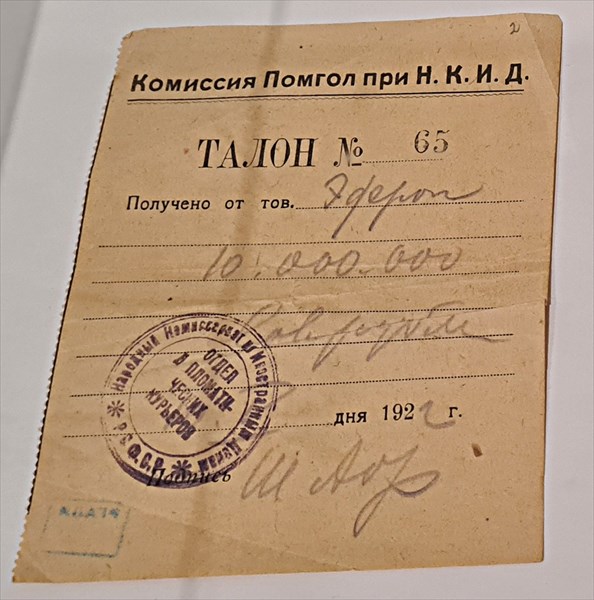 2
Комиссия Помгол при Н. К. И. Д.
ТАЛОН № 65
Получено от тов. Эферон
10.000.000
Сов рублей
Народный Комиссариат по Иностранным Делам
Р.С.Ф.С.Р.
ОТДЕЛ
ДИПЛОМАТИ-
ЧЕСКИХ
КУРЬЕРОВ
дня 1922 г.
Подпись